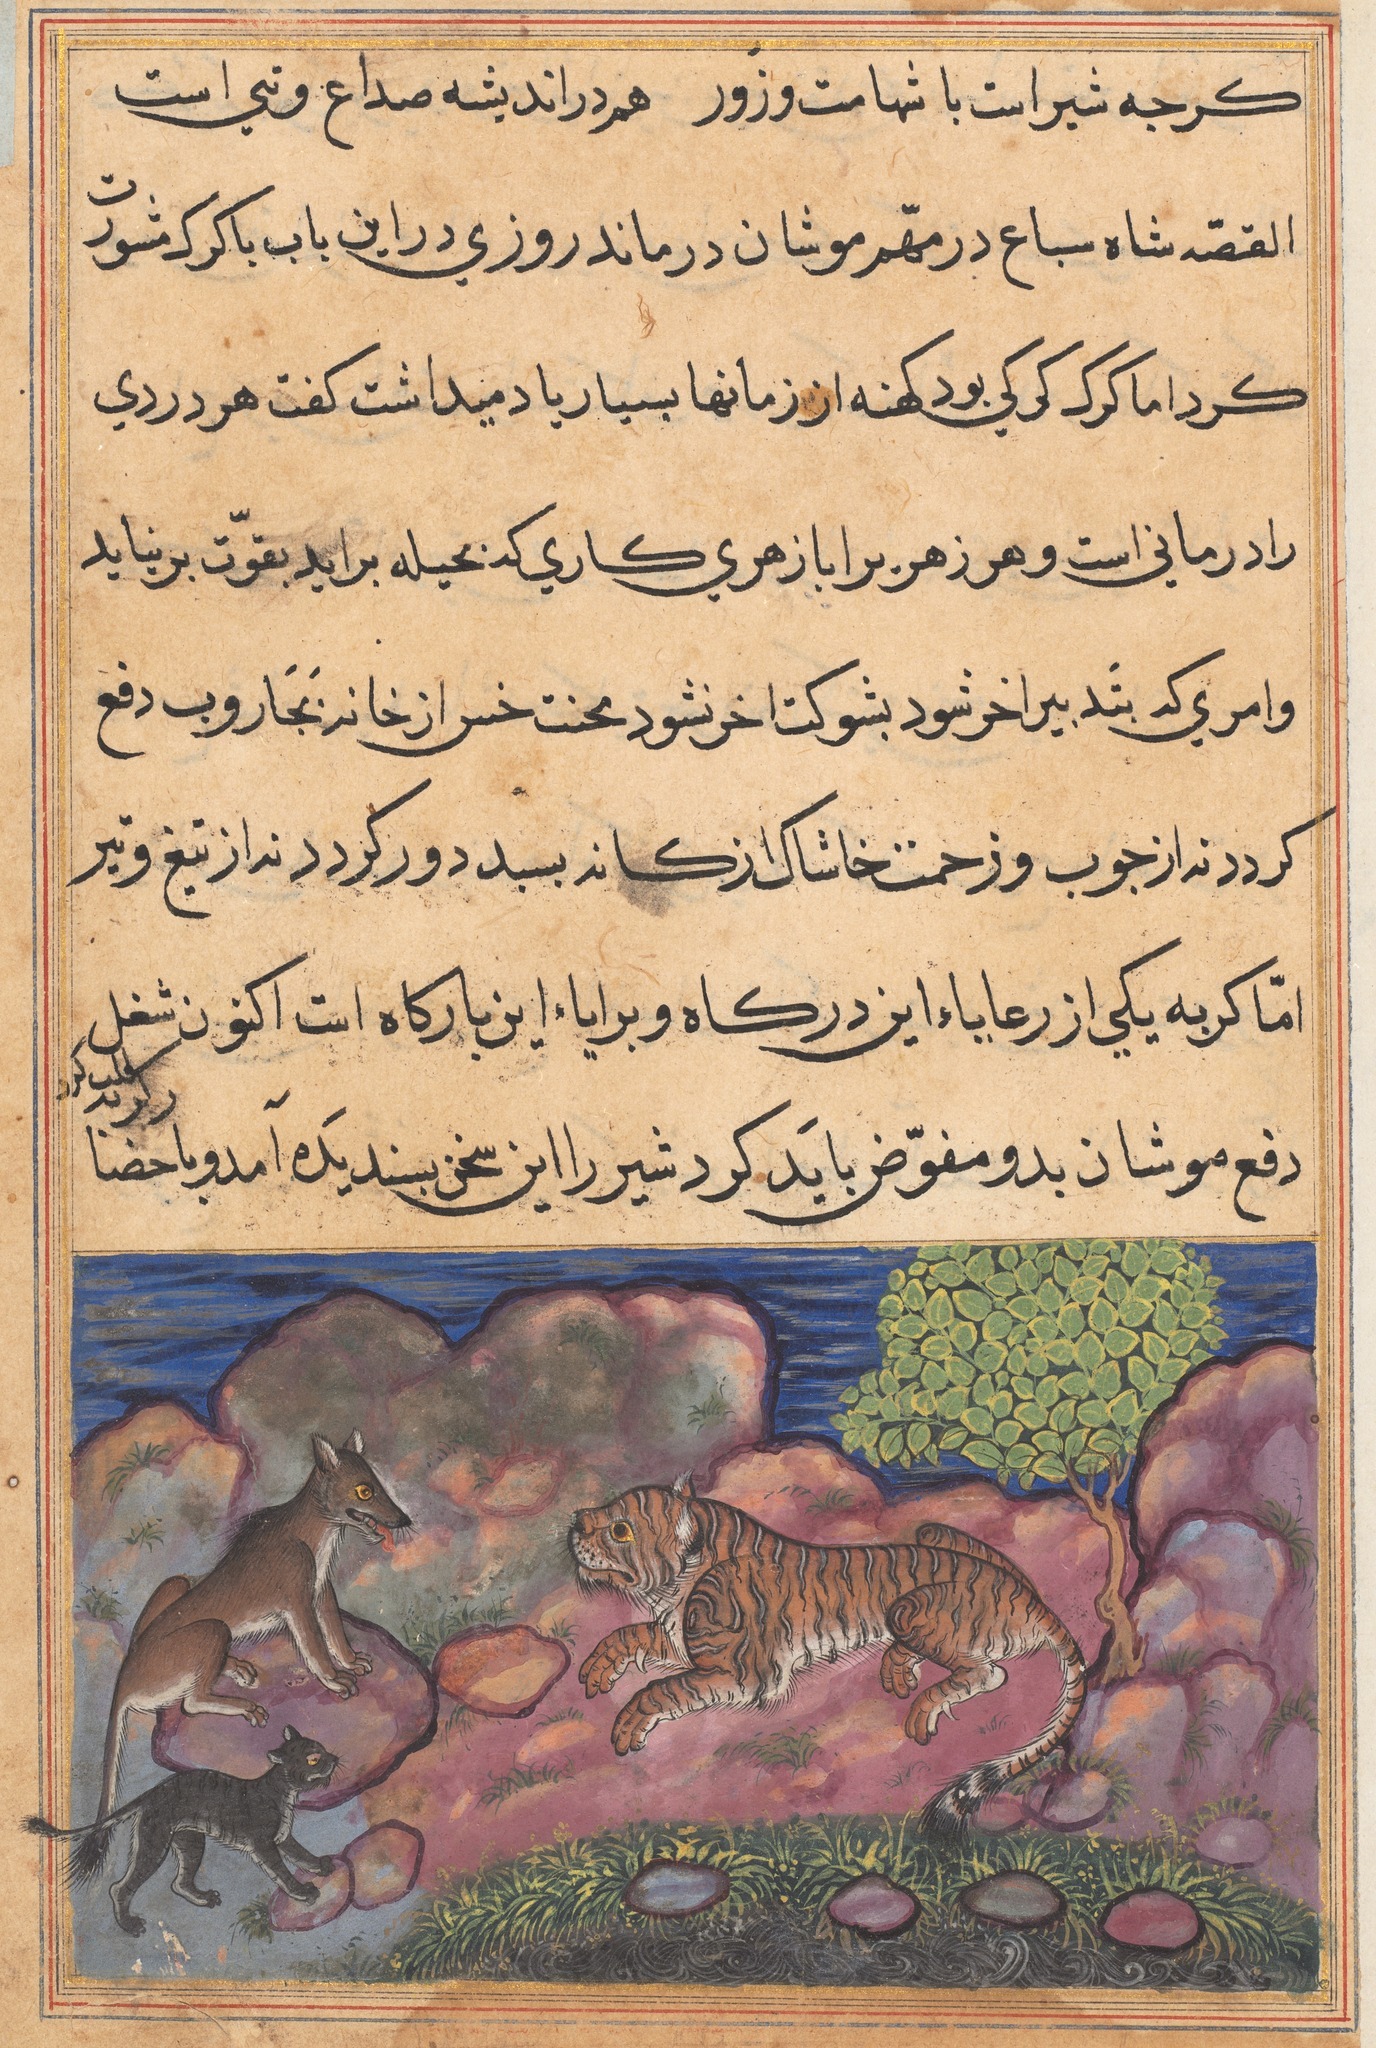 کرجه شیر است با شهامت و زور هم در اندیشه صداع و تبی است
القصّه شاه سباع در مهّم موشان در ماند روزی در این باب با کرک مشورت
کرد اما کرک کرکی بود کهنه از زمانها بسیار یاد میداشت کفت هر دردی
را درمانی است و هر زهریرا بازهری کاری که بحیله براید بقوّت بر نیاید
وامری که بتدبیر اخر شود بشوکت اخر نشود محنت خس از خانه بجاروب دفع
کردد نه از جوب و زحمت خاشاک از کانه بسبد دور کردد نه از تیغ و تیر
امّا کربه یکی از رعایاء این درکاه و برایاء این بارکاه است اکنون شغل
دفع موشان بدو مفوّض باید کرد شیر را این سخن بسندیده آمد و با حضنا
ر کربه طلب کرد